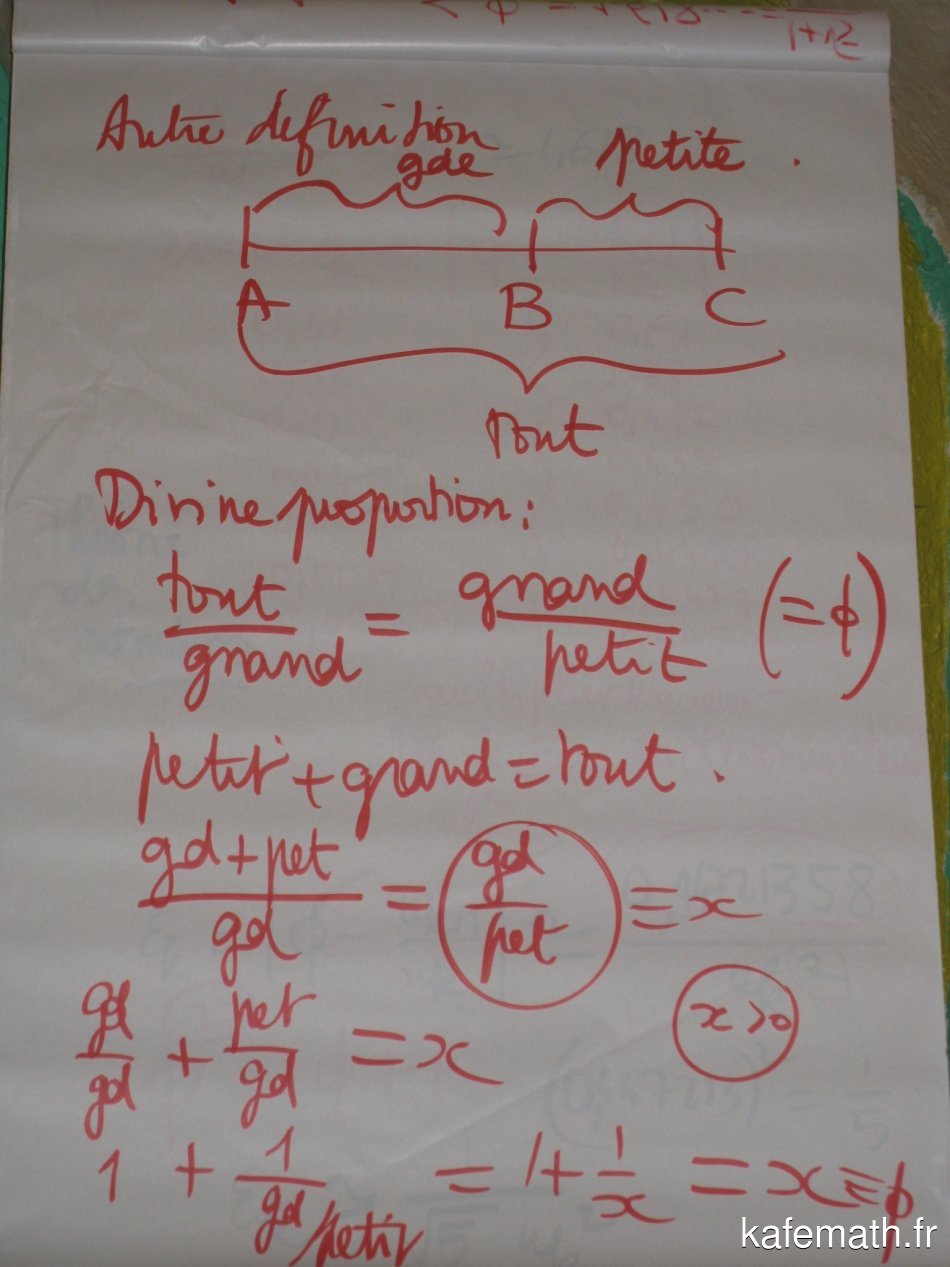 Autre definition
gde petite .
A B C
tout
Divine proportion :
tout/grand = grand/petit (= ϕ)
petit + grand = tout .
gd + pet/gd = gd/pet = x
gd/gd + pet/gd = x
x > 0
1 + 1/gd/petit = 1 + 1/x = x = ϕ
kafemath.fr